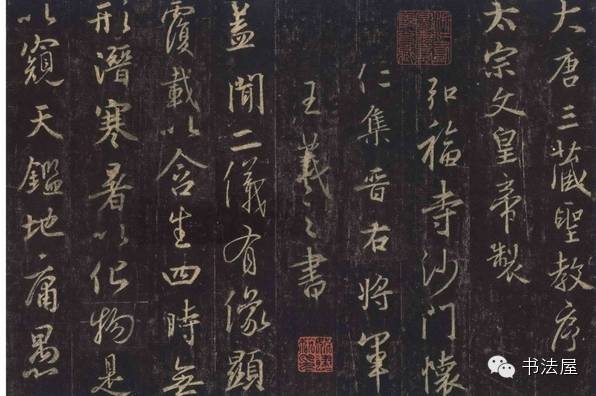 大唐三藏聖教序
太宗文皇帝製
弘福寺沙門懷
仁集晉右將軍
王羲之書
蓋聞二儀有像顯
覆載以含生四時無
形潛寒暑以化物是
以窺天鑑地庸愚
书法屋